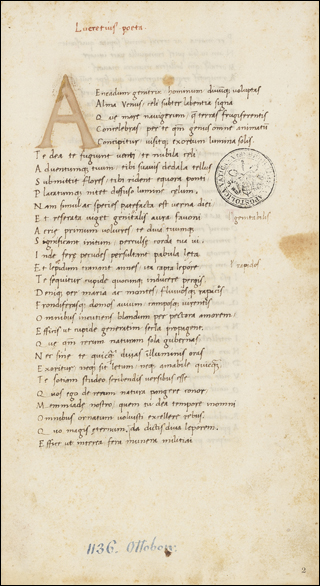 Lucretius poeta
AEneadum genitrix hominum diuumq; uoluptas
Alma Venus: celi subter labentia signa
Quae mare nauigerum, que terras frugiferentis
Concelebras: per te qm genus omne animantum
Concipitur uisitq; exortum lumina solis.
Te dea te fugiunt uenti te nubila celi
Aduentumq; tuum: tibi suauis dedala tellus
Submittit flores: tibi rident equora ponti
Placatumq; nitet diffuso lumine celum,
Nam simul ac species patefacta est uerna diei
Et reserata uiget genitalis aura fauoni
genitabilis
Aerie primum uolucres te diua tuumq;
Significant initum, perculse corda tua ui.
Inde fere pecudes persultant pabula leta
Et rapidos tranant amnes: ita capta lepore
rapidos
Te sequitur cupide quamq; inducere pergis
Deniq; per maria ac montes, fluuiosq; rapacis
Frondiferasq; domos auium camposq; uirentis
Omnibus incutiens blandum per pectora amorem
Efficis ut cupide generatim secla propagent.
Quae qm rerum naturam sola gubernas
Nec sine te quicq; dias in luminis oras
Exoritur: neq; fit letum: neq; amabile quicq;
Te sotiam studeo scribendis uersibus esse
Quos ego de rerum natura pangere conor
Memmiade nostro: quem tu dea tempore in omni
Omnibus ornatum uoluisti excellere rebus.
Quo magis eternum, da dictis diua leporem,
Effice ut interea fera munera militiai
1136. Ottobon.
2